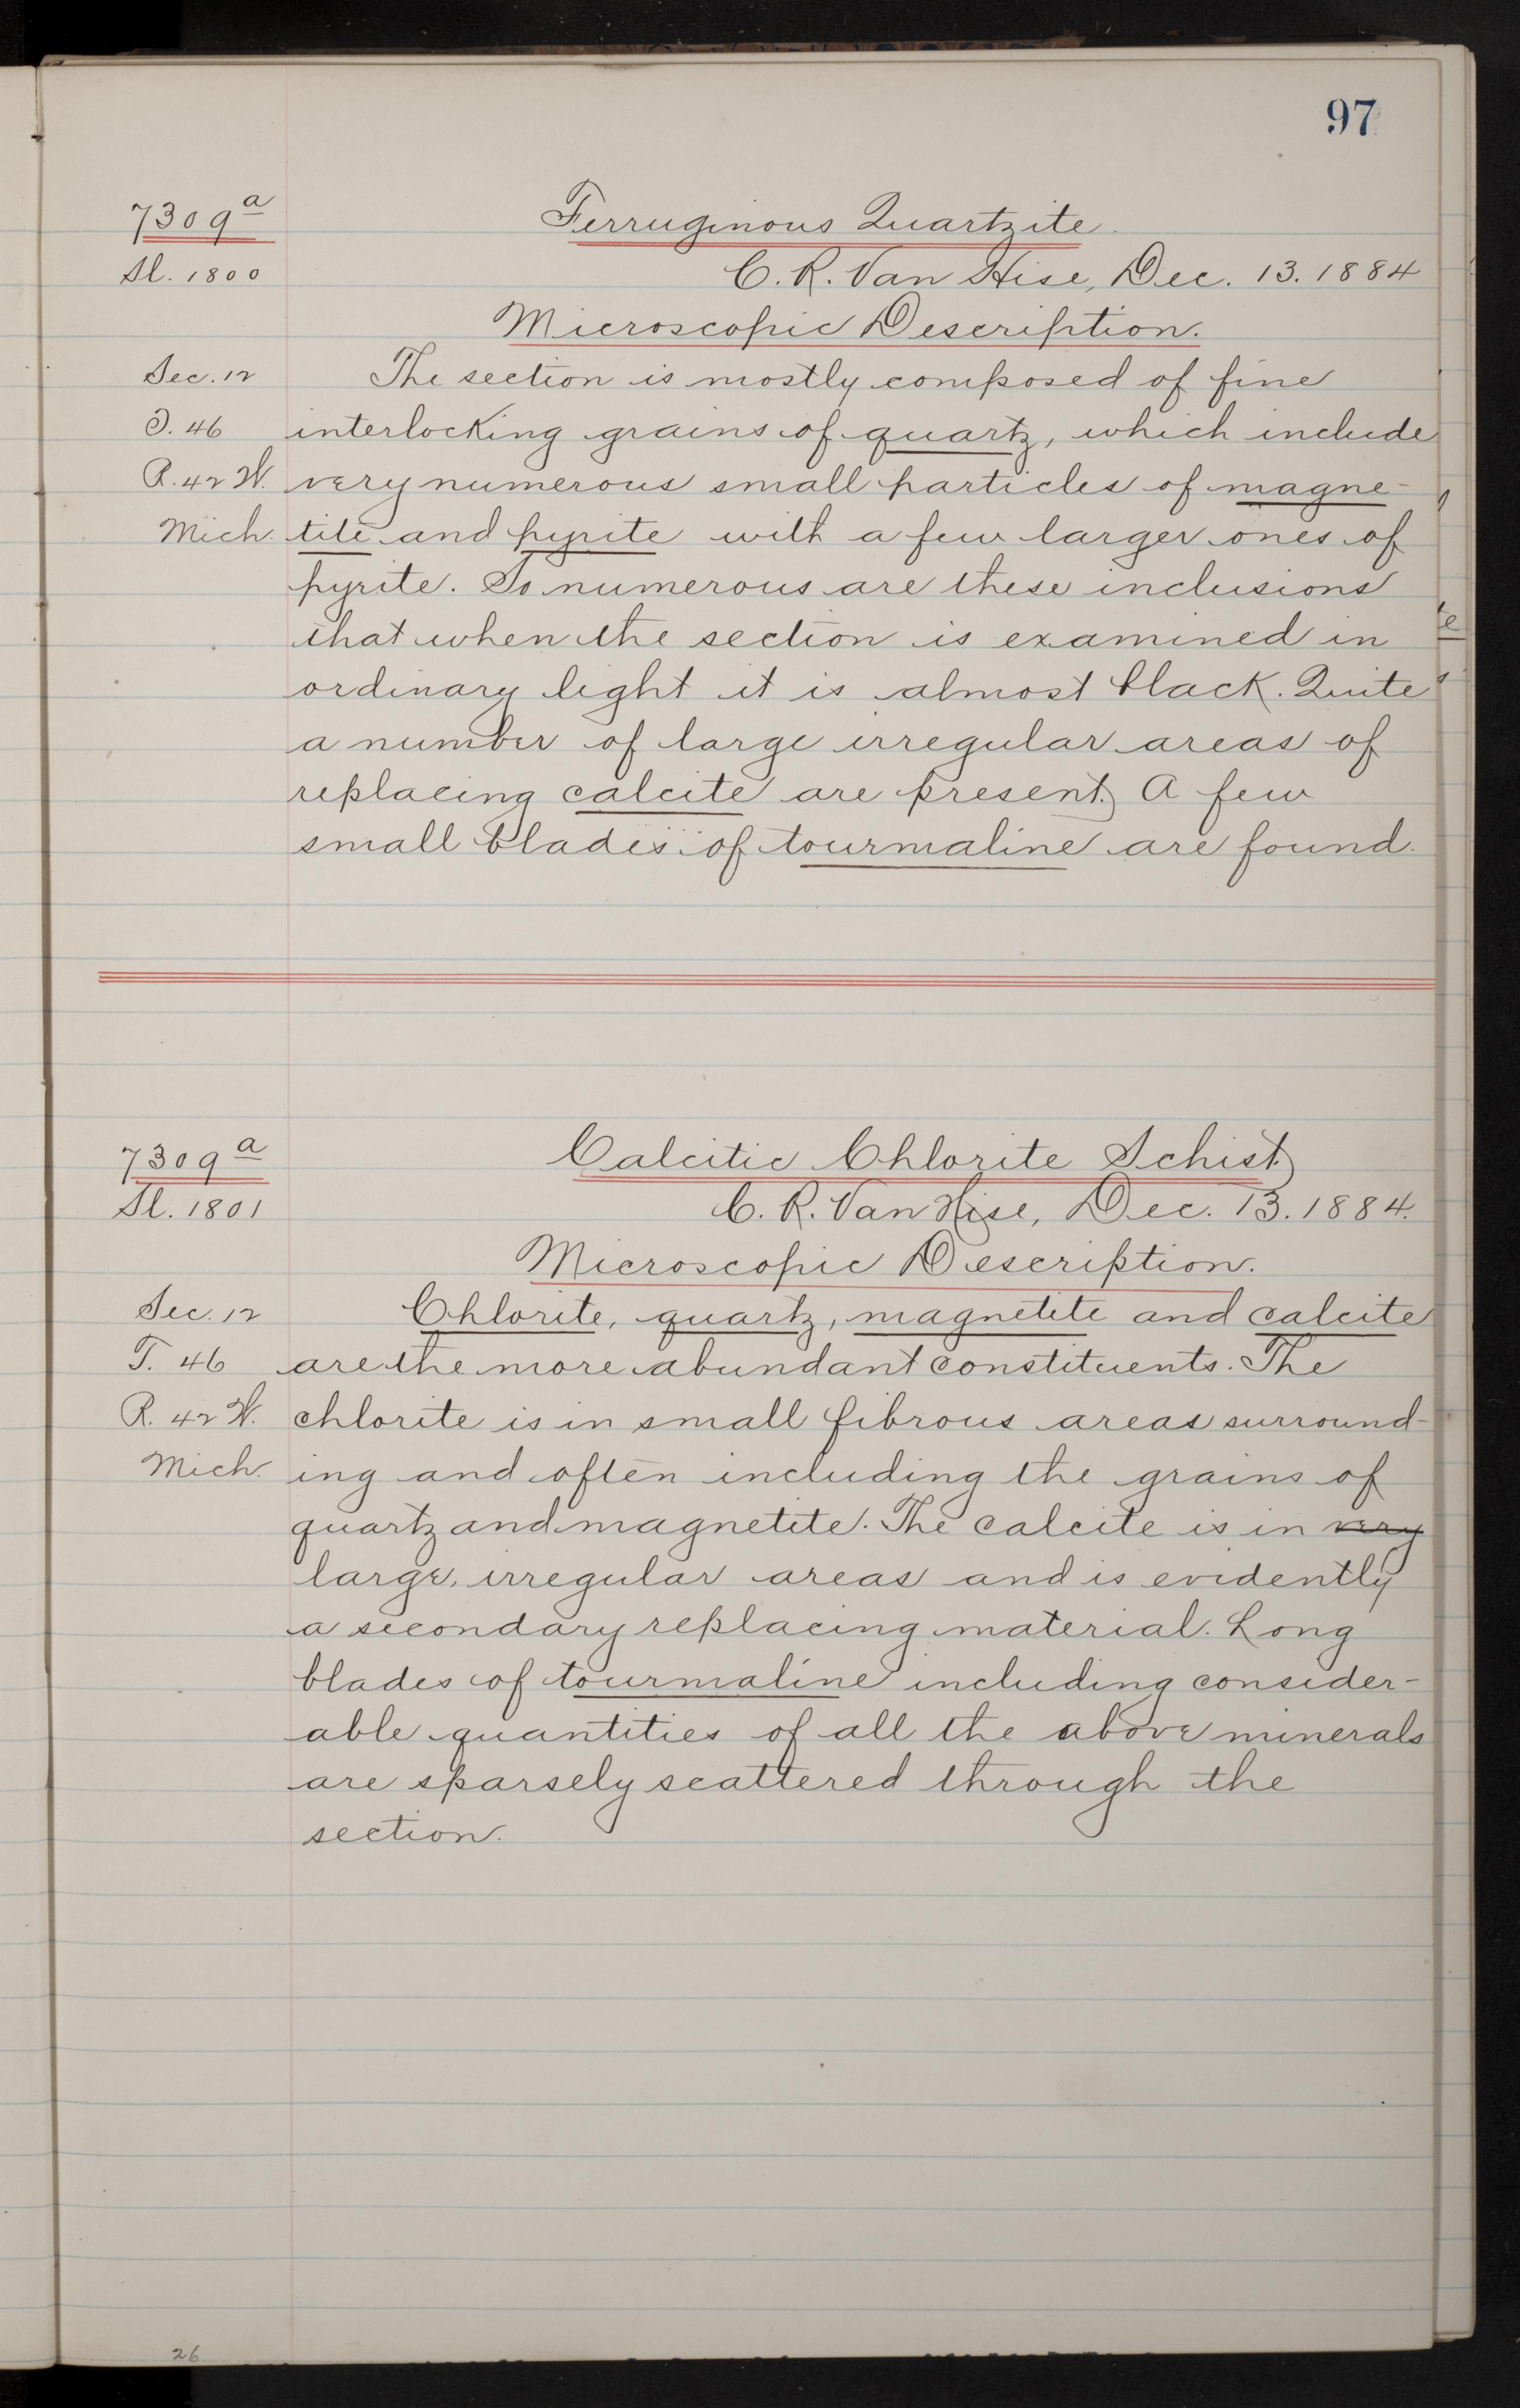 97
7309a
Ferruginous Quartzite.
Sl. 1800
C. R. Van Hise, Dec. 13. 1884
Microscopic Description.
Sec. 12
The section is mostly composed of fine
T. 46
interlocking grains of quartz, which include
R. 42 W.
very numerous small particles of magne-
Mich.
tite and pyrite with a few larger ones of
pyrite. So numerous are these inclusions
that when the section is examined in
ordinary light it is almost black. Quite
a number of large irregular areas of
replacing calcite are present. A few
small blades of tourmaline are found.
7309a
Calcitic Chlorite Schist.
Sl. 1801
C. R. Van Hise, Dec. 13. 1884.
Microscopic Description.
Sec. 12
Chlorite, quartz, magnetite and calcite
T. 46
are the more abundant constituents. The
R. 42 W.
chlorite is in small fibrous areas surround-
Mich.
ing and often including the grains of
quartz and magnetite. The calcite is in very
large, irregular areas and is evidently
a secondary replacing material. Long
blades of tourmaline including consider-
able quantities of all the above minerals
are sparsely scattered through the
section.
26